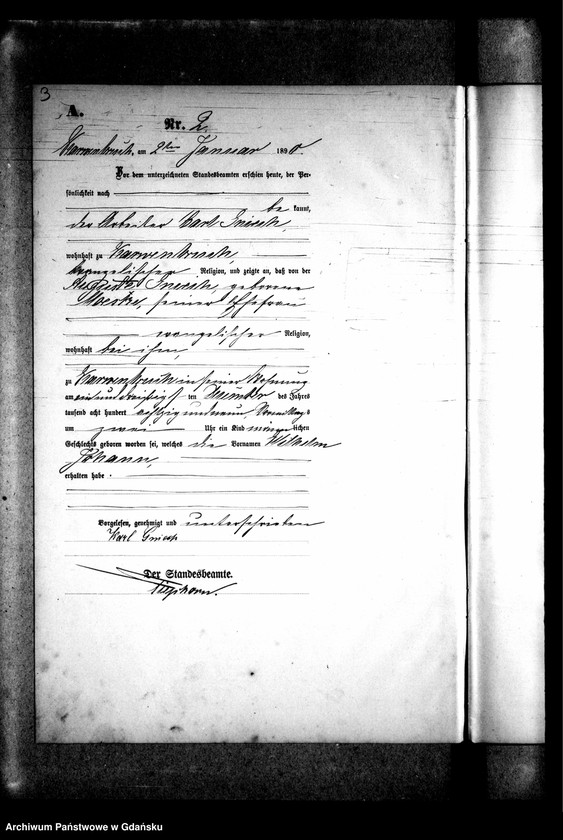 3
A.
Nr. 2.
Karwenbruch, am 2ten Januar 1890.
Vor dem unterzeichneten Standesbeamten erschien heute, der Per-
sönlichkeit nach
be kannt,
der Arbeiter Carl
wohnhaft zu Karwenbruch,
evangelischer Religion, und zeigte an, daß von der
geborene
seiner Ehefrau
evangelischer Religion,
wohnhaft bei ihm,
zu Karwenbruch in seiner Wohnung
am einunddreißigsten Dezember des Jahres
tausend acht hundert achtzig und neun, Vormittags
um zwei Uhr ein Kind männlichen
Geschlechts geboren worden sei, welches die Vornamen Wilhelm
Johann,
erhalten habe.
Vorgelesen, genehmigt und unterschrieben
Karl
Der Standesbeamte.
Archiwum Państwowe w Gdańsku